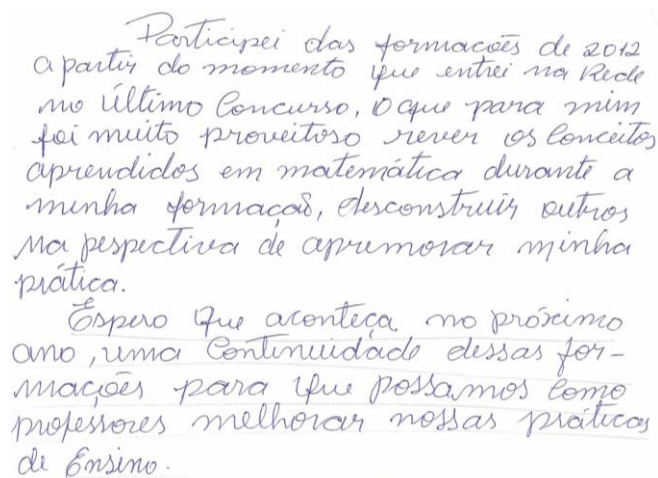 Participei das formações de 2012
a partir do momento que entrei na Rede
no último Concurso, o que para mim
foi muito proveitoso rever os conceitos
aprendidos em matemática durante a
minha formação, desconstruir outros
na pespectiva de apremorar minha
prática.
Espero que aconteça no próximo
ano, uma Continuidade dessas for-
mações para que possamos como
professores melhorar nossas práticas
de Ensino.